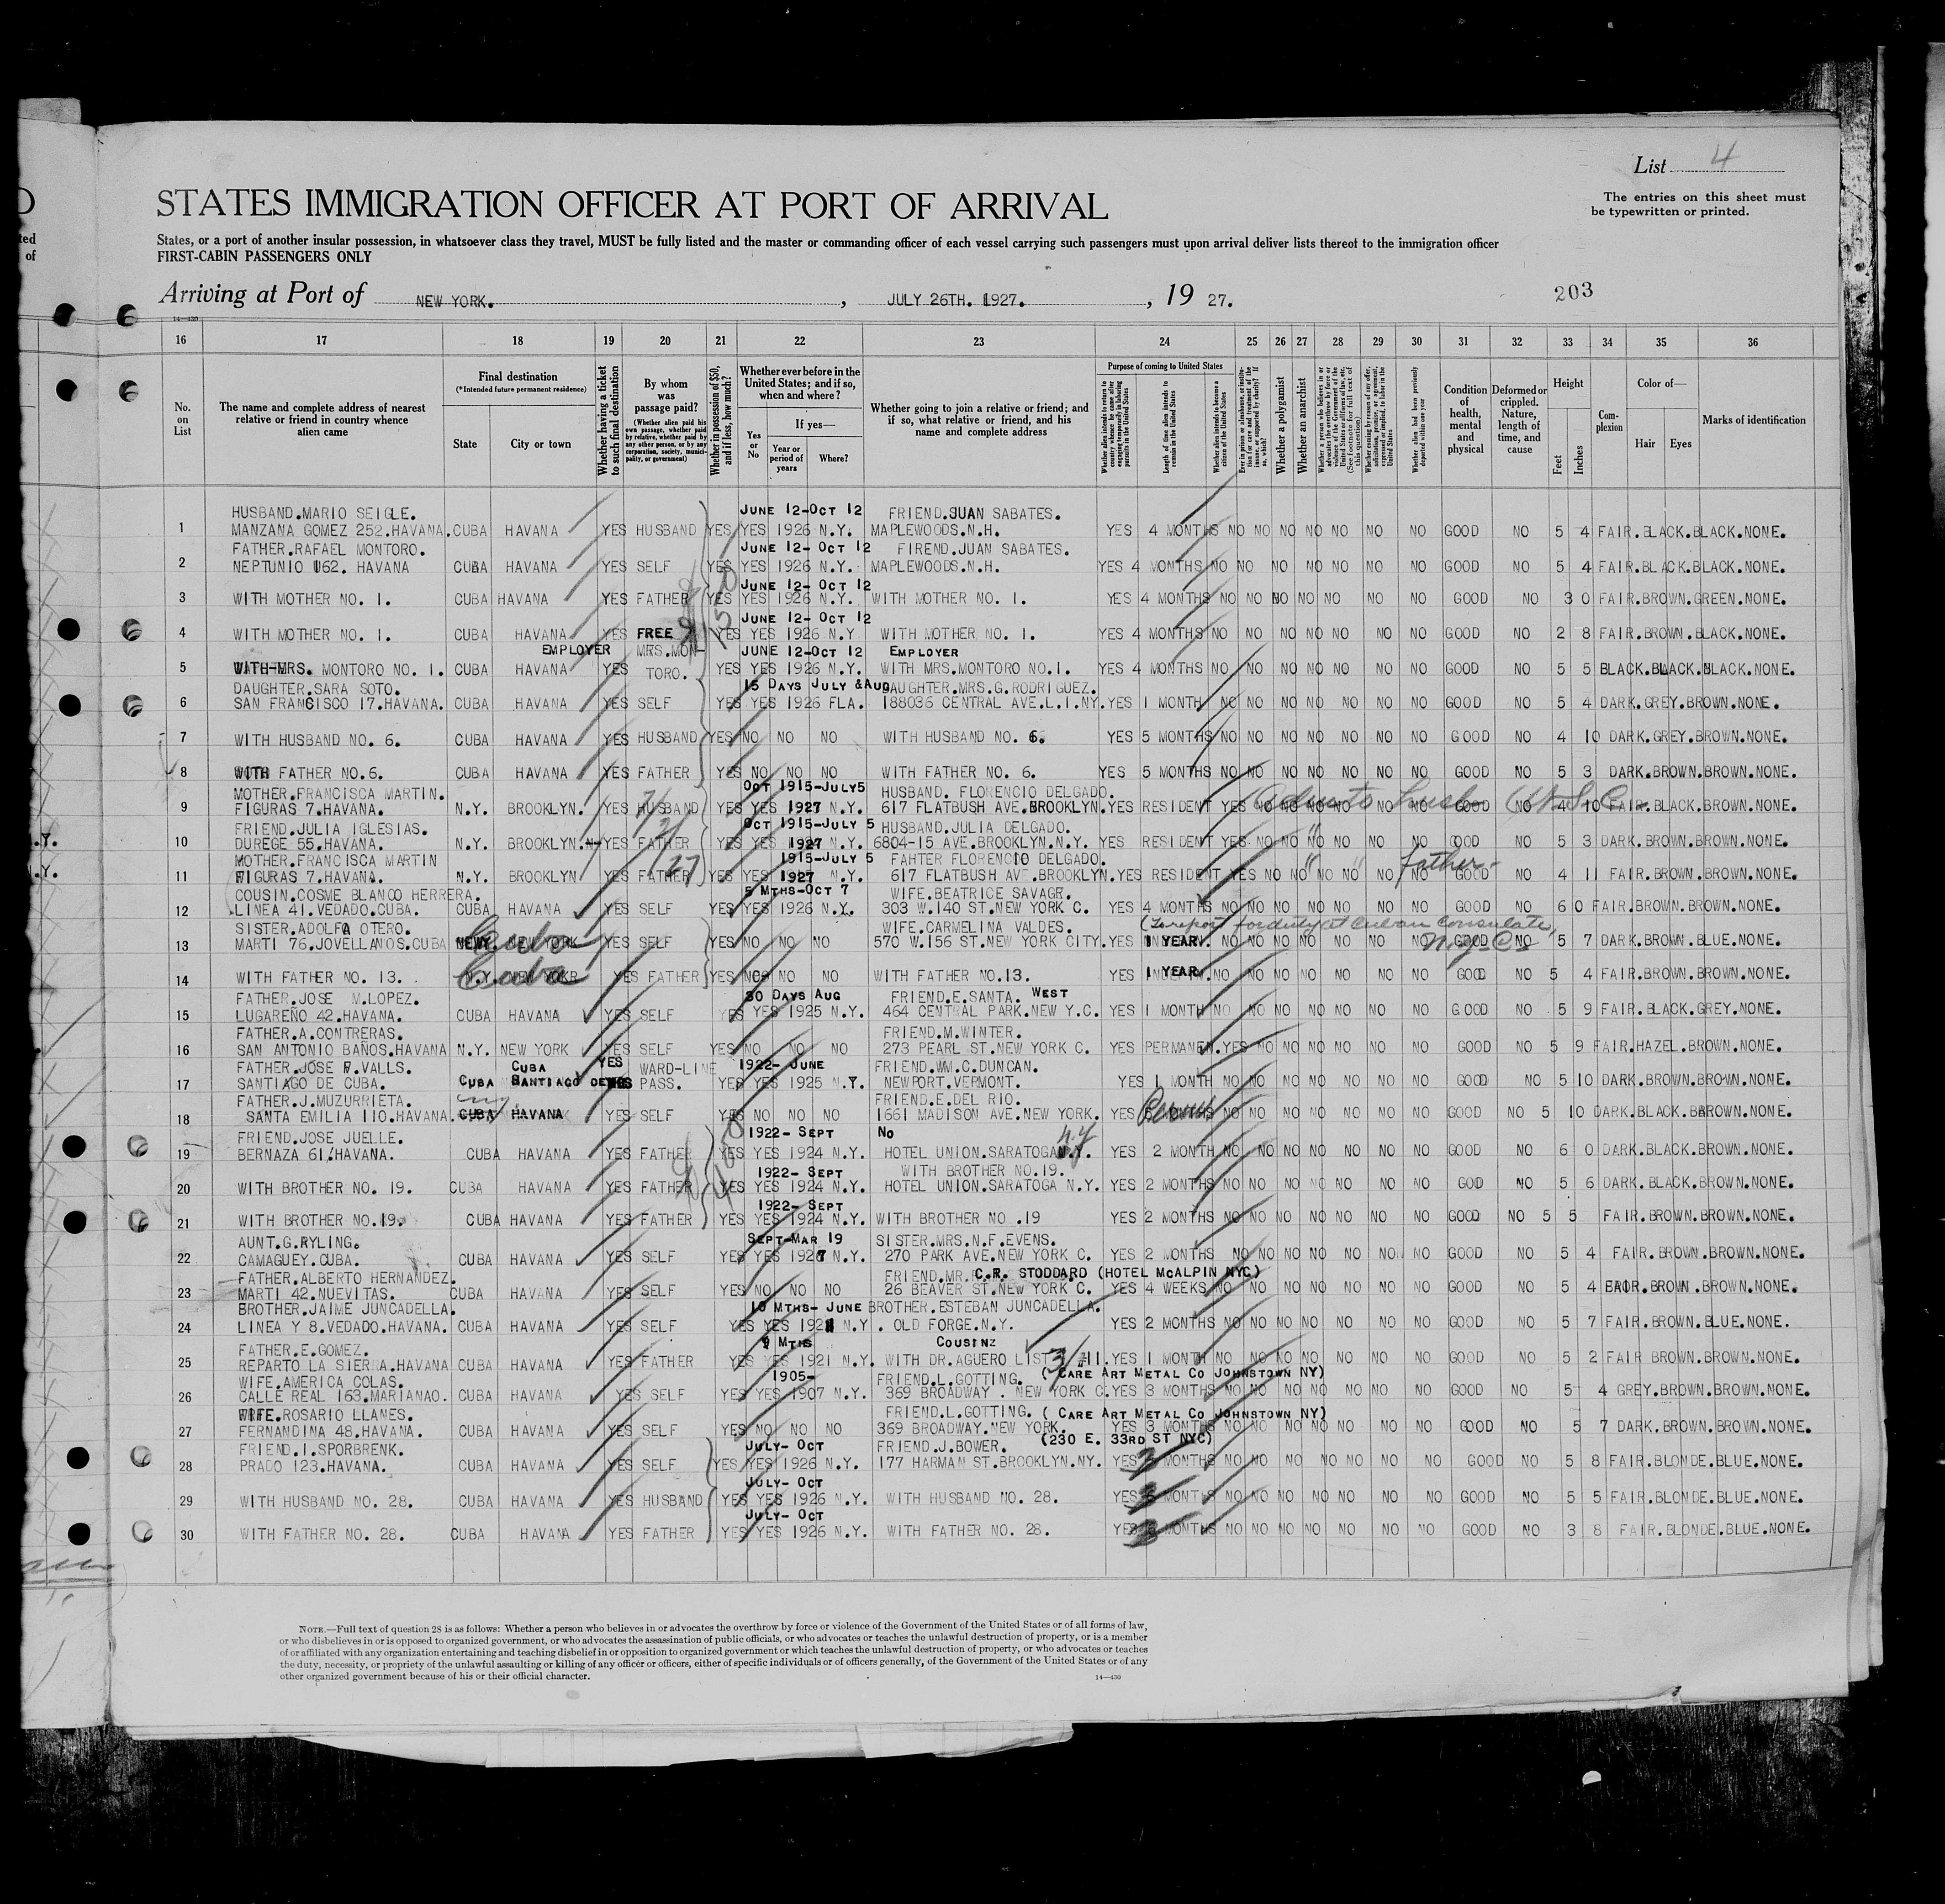 List 4
The entries on this sheet must
be typewritten or printed.
STATES IMMIGRATION OFFICER AT PORT OF ARRIVAL
States, or a port of another insular possession, in whatsoever class they travel, MUST be fully listed and the master or commanding officer of each vessel carrying such passengers must upon arrival deliver lists thereof to the immigration officer
FIRST-CABIN PASSENGERS ONLY
Arriving at Port of NEW YORK. , JULY 26TH. 1927. , 19 27.
203
16 17 18 19 20 21 22 23 24 25 26 27 28 29 30 31 32 33 34 35 36
No. on List
The name and complete address of nearest relative or friend in country whence alien came
Final destination
(*Intended future permanent residence)
State
City or town
Whether having a ticket to such final destination
By whom was passage paid?
(Whether alien paid his own passage, whether paid by relative, whether paid by any other person, or by any corporation, society, municipality, or government)
Whether in possession of $50, and if less, how much?
Whether ever before in the United States; and if so, when and where?
If yes—
Yes or No
Year or period of years
Where?
Whether going to join a relative or friend; and if so, what relative or friend, and his name and complete address
Purpose of coming to United States
Whether alien intends to return to country whence he came after engaging temporarily in laboring pursuits in the United States
Length of time alien intends to remain in the United States
Whether alien intends to become a citizen of the United States
Whether a polygamist
Whether an anarchist
Whether alien had been previously deported within one year
Condition of health, mental and physical
Deformed or crippled. Nature, length of time, and cause
Height
Feet
Inches
Complexion
Color of—
Hair
Eyes
Marks of identification
HUSBAND.MARIO SEIGLE. JUNE 12-OCT 12 FRIEND.JUAN SABATES.
1 MANZANA GOMEZ 252.HAVANA. CUBA HAVANA YES HUSBAND YES YES 1926 N.Y. MAPLEWOODS.N.H. YES 4 MONTHS NO NO NO NO NO NO NO GOOD NO 5 4 FAIR.BLACK.BLACK.NONE.
FATHER.RAFAEL MONTORO. JUNE 12- OCT 12 FIREND.JUAN SABATES.
2 NEPTUNIO 162. HAVANA CUBA HAVANA YES SELF YES YES 1926 N.Y. MAPLEWOODS.N.H. YES 4 MONTHS NO NO NO NO NO NO NO GOOD NO 5 4 FAIR.BLACK.BLACK.NONE.
JUNE 12- OCT 12
3 WITH MOTHER NO. 1. CUBA HAVANA YES FATHER YES YES 1926 N.Y. WITH MOTHER NO. 1. YES 4 MONTHS NO NO NO NO NO NO NO GOOD NO 3 0 FAIR.BROWN.GREEN.NONE.
JUNE 12- OCT 12
4 WITH MOTHER NO. 1. CUBA HAVANA YES FREE YES YES 1926 N.Y WITH MOTHER NO. 1. YES 4 MONTHS NO NO NO NO NO NO NO GOOD NO 2 8 FAIR.BROWN.BLACK.NONE.
EMPLOYER MRS.MON- JUNE 12-OCT 12 EMPLOYER
5 WITH-MRS. MONTORO NO. 1. CUBA HAVANA YES TORO. YES YES 1926 N.Y. WITH MRS.MONTORO NO.1. YES 4 MONTHS NO NO NO NO NO NO NO GOOD NO 5 5 BLACK.BLACK.BLACK.NONE.
DAUGHTER.SARA SOTO. 15 DAYS JULY &AUG DAUGHTER.MRS.G.RODRIGUEZ.
6 SAN FRANCISCO 17.HAVANA. CUBA HAVANA YES SELF YES YES 1926 FLA. 188036 CENTRAL AVE.L.I.NY. YES 1 MONTH NO NO NO NO NO NO NO GOOD NO 5 4 DARK.GREY.BROWN.NONE.
7 WITH HUSBAND NO. 6. CUBA HAVANA YES HUSBAND YES NO NO NO WITH HUSBAND NO. 6. YES 5 MONTHS NO NO NO NO NO NO NO GOOD NO 4 10 DARK.GREY.BROWN.NONE.
8 WITH FATHER NO.6. CUBA HAVANA YES FATHER YES NO NO NO WITH FATHER NO. 6. YES 5 MONTHS NO NO NO NO NO NO NO GOOD NO 5 3 DARK.BROWN.BROWN.NONE.
MOTHER.FRANCISCA MARTIN. OCT 1915-JULY5 HUSBAND. FLORENCIO DELGADO.
9 FIGURAS 7.HAVANA. N.Y. BROOKLYN. YES HUSBAND YES YES 1927 N.Y. 617 FLATBUSH AVE.BROOKLYN. YES RESIDENT YES NO NO NO NO NO NO GOOD NO 4 10 FAIR.BLACK.BROWN.NONE.
FRIEND.JULIA IGLESIAS. OCT 1915-JULY 5 HUSBAND.JULIA DELGADO.
10 DUREGE 55.HAVANA. N.Y. BROOKLYN. YES FATHER YES YES 1927 N.Y. 6804-15 AVE.BROOKLYN.N.Y. YES RESIDENT YES NO NO NO NO NO NO GOOD NO 5 3 DARK.BROWN.BROWN.NONE.
MOTHER.FRANCISCA MARTIN 1915-JULY 5 FAHTER FLORENCIO DELGADO. father-
11 FIGURAS 7.HAVANA. N.Y. BROOKLYN YES FATHER YES YES 1927 N.Y. 617 FLATBUSH AVE.BROOKLYN. YES RESIDENT YES NO NO NO NO NO NO GOOD NO 4 11 FAIR.BROWN.BROWN.NONE.
COUSIN.COSME BLANCO HERRERA. 5 MTHS-OCT 7 WIFE.BEATRICE SAVAGR.
12 LINEA 41.VEDADO.CUBA. CUBA HAVANA YES SELF YES YES 1926 N.Y. 303 W.140 ST.NEW YORK C. YES 4 MONTHS NO NO NO NO NO NO NO GOOD NO 6 0 FAIR.BROWN.BROWN.NONE.
SISTER.ADOLFA OTERO. WIFE.CARMELINA VALDES. (To report for duty at Cuban Consulate, N.Y.C.
13 MARTI 76.JOVELLANOS.CUBA Cuba NEW YORK YES SELF YES NO NO NO 570 W.156 ST.NEW YORK CITY. YES 1 YEAR. NO NO NO NO NO NO NO GOOD NO 5 7 DARK.BROWN.BLUE.NONE.
14 WITH FATHER NO. 13. Cuba N.Y. YES FATHER YES NO NO NO WITH FATHER NO.13. YES 1 YEAR. NO NO NO NO NO NO NO GOOD NO 5 4 FAIR.BROWN.BROWN.NONE.
FATHER.JOSE M.LOPEZ. 30 DAYS AUG FRIEND.E.SANTA. WEST
15 LUGAREÑO 42.HAVANA. CUBA HAVANA YES SELF YES YES 1925 N.Y. 464 CENTRAL PARK.NEW Y.C. YES 1 MONTH NO NO NO NO NO NO NO GOOD NO 5 9 FAIR.BLACK.GREY.NONE.
FATHER.A.CONTRERAS. FRIEND.M.WINTER.
16 SAN ANTONIO BAÑOS.HAVANA N.Y. NEW YORK YES SELF YES NO NO NO 273 PEARL ST.NEW YORK C. YES PERMANEN. YES NO NO NO NO NO NO GOOD NO 5 9 FAIR.HAZEL.BROWN.NONE.
FATHER.JOSE F.VALLS. CUBA YES WARD-LINE 1922- JUNE FRIEND.WM.C.DUNCAN.
17 SANTIAGO DE CUBA. CUBA SANTIAGO DE PASS. YES YES 1925 N.Y. NEWPORT.VERMONT. YES 1 MONTH NO NO NO NO NO NO NO GOOD NO 5 10 DARK.BROWN.BROWN.NONE.
FATHER.J.MUZURRIETA. FRIEND.E.DEL RIO.
18 SANTA EMILIA 110.HAVANA. CUBA HAVANA YES SELF YES NO NO NO 1661 MADISON AVE.NEW YORK. YES NO NO NO NO NO NO NO GOOD NO 5 10 DARK.BLACK.BROWN.NONE.
FRIEND.JOSE JUELLE. 1922- SEPT NO
19 BERNAZA 61.HAVANA. CUBA HAVANA YES FATHER YES YES 1924 N.Y. HOTEL UNION.SARATOGA N.Y. YES 2 MONTH NO NO NO NO NO NO NO GOOD NO 6 0 DARK.BLACK.BROWN.NONE.
1922- SEPT WITH BROTHER NO.19.
20 WITH BROTHER NO. 19. CUBA HAVANA YES FATHER YES YES 1924 N.Y. HOTEL UNION.SARATOGA N.Y. YES 2 MONTHS NO NO NO NO NO NO NO GOOD NO 5 6 DARK.BLACK.BROWN.NONE.
1922- SEPT
21 WITH BROTHER NO.19. CUBA HAVANA YES FATHER YES YES 1924 N.Y. WITH BROTHER NO .19 YES 2 MONTHS NO NO NO NO NO NO NO GOOD NO 5 5 FAIR.BROWN.BROWN.NONE.
AUNT.G.RYLING. SEPT-MAR 19 SISTER.MRS.N.F.EVENS.
22 CAMAGUEY.CUBA. CUBA HAVANA YES SELF YES YES 1927 N.Y. 270 PARK AVE.NEW YORK C. YES 2 MONTHS NO NO NO NO NO NO NO GOOD NO 5 4 FAIR.BROWN.BROWN.NONE.
FATHER.ALBERTO HERNANDEZ. FRIEND.MR. C.R. STODDARD (HOTEL McALPIN NYC)
23 MARTI 42.NUEVITAS. CUBA HAVANA YES SELF YES NO NO NO 26 BEAVER ST.NEW YORK C. YES 4 WEEKS NO NO NO NO NO NO NO GOOD NO 5 4 FAIR.BROWN.BROWN.NONE.
BROTHER.JAIME JUNCADELLA. 10 MTHS- JUNE BROTHER.ESTEBAN JUNCADELLA.
24 LINEA Y 8.VEDADO.HAVANA. CUBA HAVANA YES SELF YES YES 1921 N.Y. OLD FORGE.N.Y. YES 2 MONTHS NO NO NO NO NO NO NO GOOD NO 5 7 FAIR.BROWN.BLUE.NONE.
FATHER.E.GOMEZ. 9 MTHS COUSINZ
25 REPARTO LA SIERRA.HAVANA CUBA HAVANA YES FATHER YES YES 1921 N.Y. WITH DR.AGUERO LIST 3/ #11. YES 1 MONTH NO NO NO NO NO NO NO GOOD NO 5 2 FAIR BROWN.BROWN.NONE.
WIFE.AMERICA COLAS. 1905- FRIEND.L.GOTTING. (CARE ART METAL CO JOHNSTOWN NY)
26 CALLE REAL 163.MARIANAO. CUBA HAVANA YES SELF YES YES 1907 N.Y. 369 BROADWAY . NEW YORK C. YES 3 MONTHS NO NO NO NO NO NO NO GOOD NO 5 4 GREY.BROWN.BROWN.NONE.
WIFE.ROSARIO LLANES. FRIEND.L.GOTTING. (CARE ART METAL CO JOHNSTOWN NY)
27 FERNANDINA 48.HAVANA. CUBA HAVANA YES SELF YES NO NO NO 369 BROADWAY.NEW YORK. YES 3 MONTHS NO NO NO NO NO NO NO GOOD NO 5 7 DARK.BROWN.BROWN.NONE.
FRIEND.I.SPORBRENK. JULY- OCT FRIEND.J.BOWER. (230 E. 33RD ST NYC)
28 PRADO 123.HAVANA. CUBA HAVANA YES SELF YES YES 1926 N.Y. 177 HARMAN ST.BROOKLYN.NY. YES 3 MONTHS NO NO NO NO NO NO NO GOOD NO 5 8 FAIR.BLONDE.BLUE.NONE.
JULY- OCT
29 WITH HUSBAND NO. 28. CUBA HAVANA YES HUSBAND YES YES 1926 N.Y. WITH HUSBAND NO. 28. YES 3 MONTHS NO NO NO NO NO NO NO GOOD NO 5 5 FAIR.BLONDE.BLUE.NONE.
JULY- OCT
30 WITH FATHER NO. 28. CUBA HAVANA YES FATHER YES YES 1926 N.Y. WITH FATHER NO. 28. YES 3 MONTHS NO NO NO NO NO NO NO GOOD NO 3 8 FAIR.BLONDE.BLUE.NONE.
NOTE.—Full text of question 28 is as follows: Whether a person who believes in or advocates the overthrow by force or violence of the Government of the United States or of all forms of law,
or who disbelieves in or is opposed to organized government, or who advocates the assassination of public officials, or who advocates or teaches the unlawful destruction of property, or is a member
of or affiliated with any organization entertaining and teaching disbelief in or opposition to organized government or which teaches the unlawful destruction of property, or who advocates or teaches
the duty, necessity, or propriety of the unlawful assaulting or killing of any officer or officers, either of specific individuals or of officers generally, of the Government of the United States or of any
other organized government because of his or their official character.
14—430